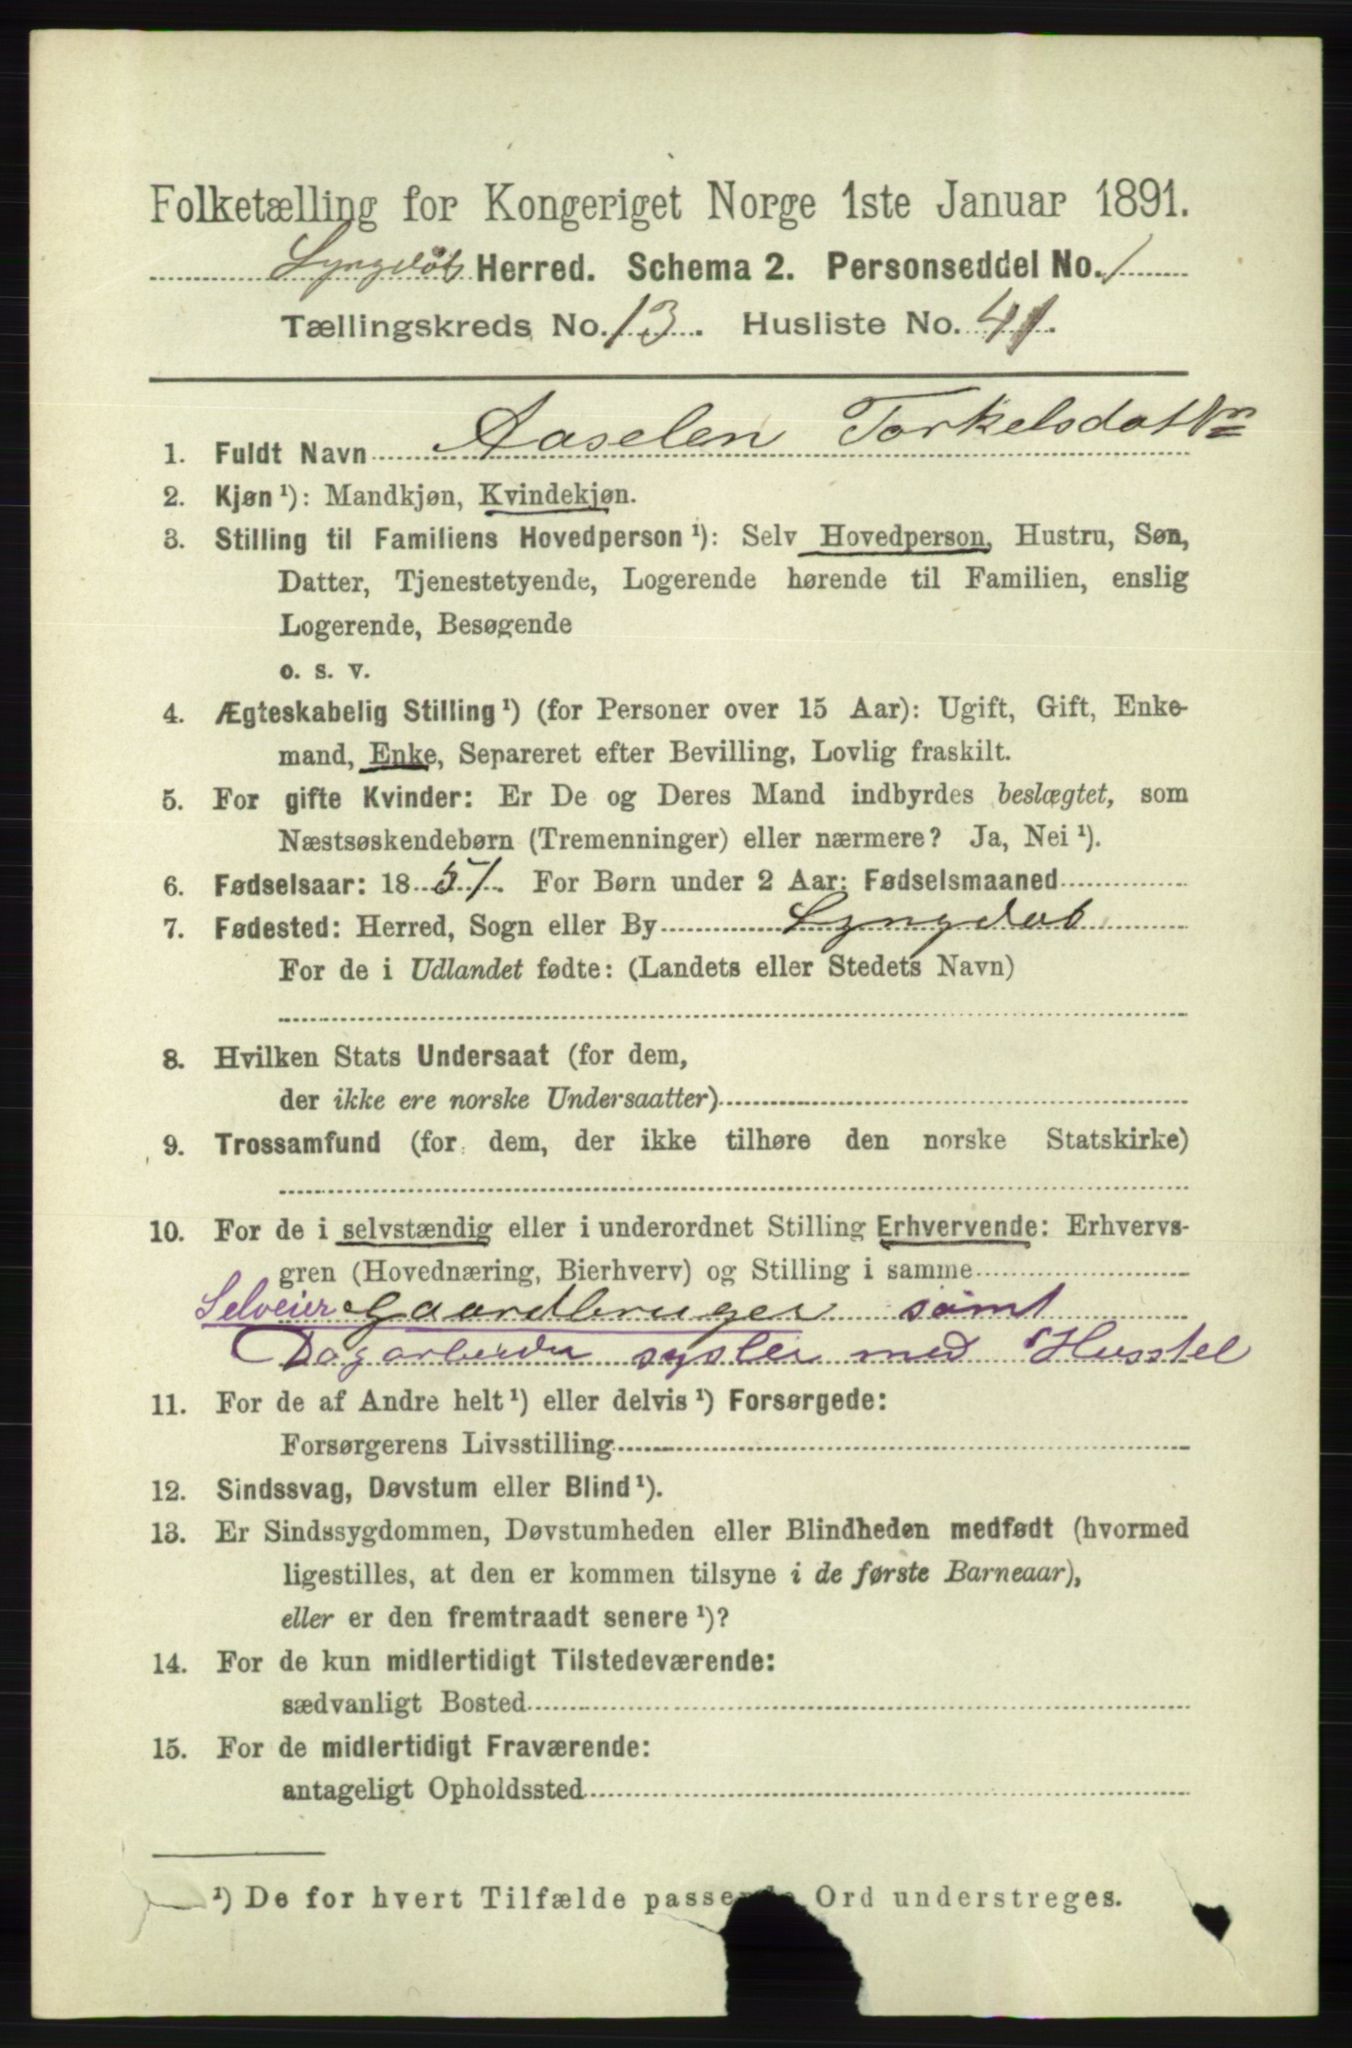 Folketælling for Kongeriget Norge 1ste Januar 1891.
Lyngdøl Herred. Schema 2. Personseddel No. 1
Tællingskreds No. 13. Husliste No. 41.
1. Fuldt Navn Aaselen Torkelsdatter
2. Kjøn ¹): Mandkjøn, Kvindekjøn.
3. Stilling til Familiens Hovedperson ¹): Selv Hovedperson, Hustru, Søn,
Datter, Tjenestetyende, Logerende hørende til Familien, enslig
Logerende, Besøgende
o. s. v.
4. Ægteskabelig Stilling ¹) (for Personer over 15 Aar): Ugift, Gift, Enke-
mand, Enke, Separeret efter Bevilling, Lovlig fraskilt.
5. For gifte Kvinder: Er De og Deres Mand indbyrdes beslægtet, som
Næstsøskendebørn (Tremenninger) eller nærmere? Ja, Nei ¹).
6. Fødselsaar: 1851. For Børn under 2 Aar: Fødselsmaaned
7. Fødested: Herred, Sogn eller By Lyngdal
For de i Udlandet fødte: (Landets eller Stedets Navn)
8. Hvilken Stats Undersaat (for dem,
der ikke ere norske Undersaatter)
9. Trossamfund (for dem, der ikke tilhøre den norske Statskirke)
10. For de i selvstændig eller i underordnet Stilling Erhvervende: Erhvervs-
gren (Hovednæring, Bierhverv) og Stilling i samme
Selveier Gaardbruger samt
Dagarbeider sysler med Husstel
11. For de af Andre helt ¹) eller delvis ¹) Forsørgede:
Forsørgerens Livsstilling
12. Sindssvag, Døvstum eller Blind ¹).
13. Er Sindssygdommen, Døvstumheden eller Blindheden medfødt (hvormed
ligestilles, at den er kommen tilsyne i de første Barneaar),
eller er den fremtraadt senere ¹)?
14. For de kun midlertidigt Tilstedeværende:
sædvanligt Bosted
15. For de midlertidigt Fraværende:
antageligt Opholdssted
¹) De for hvert Tilfælde passende Ord understreges.